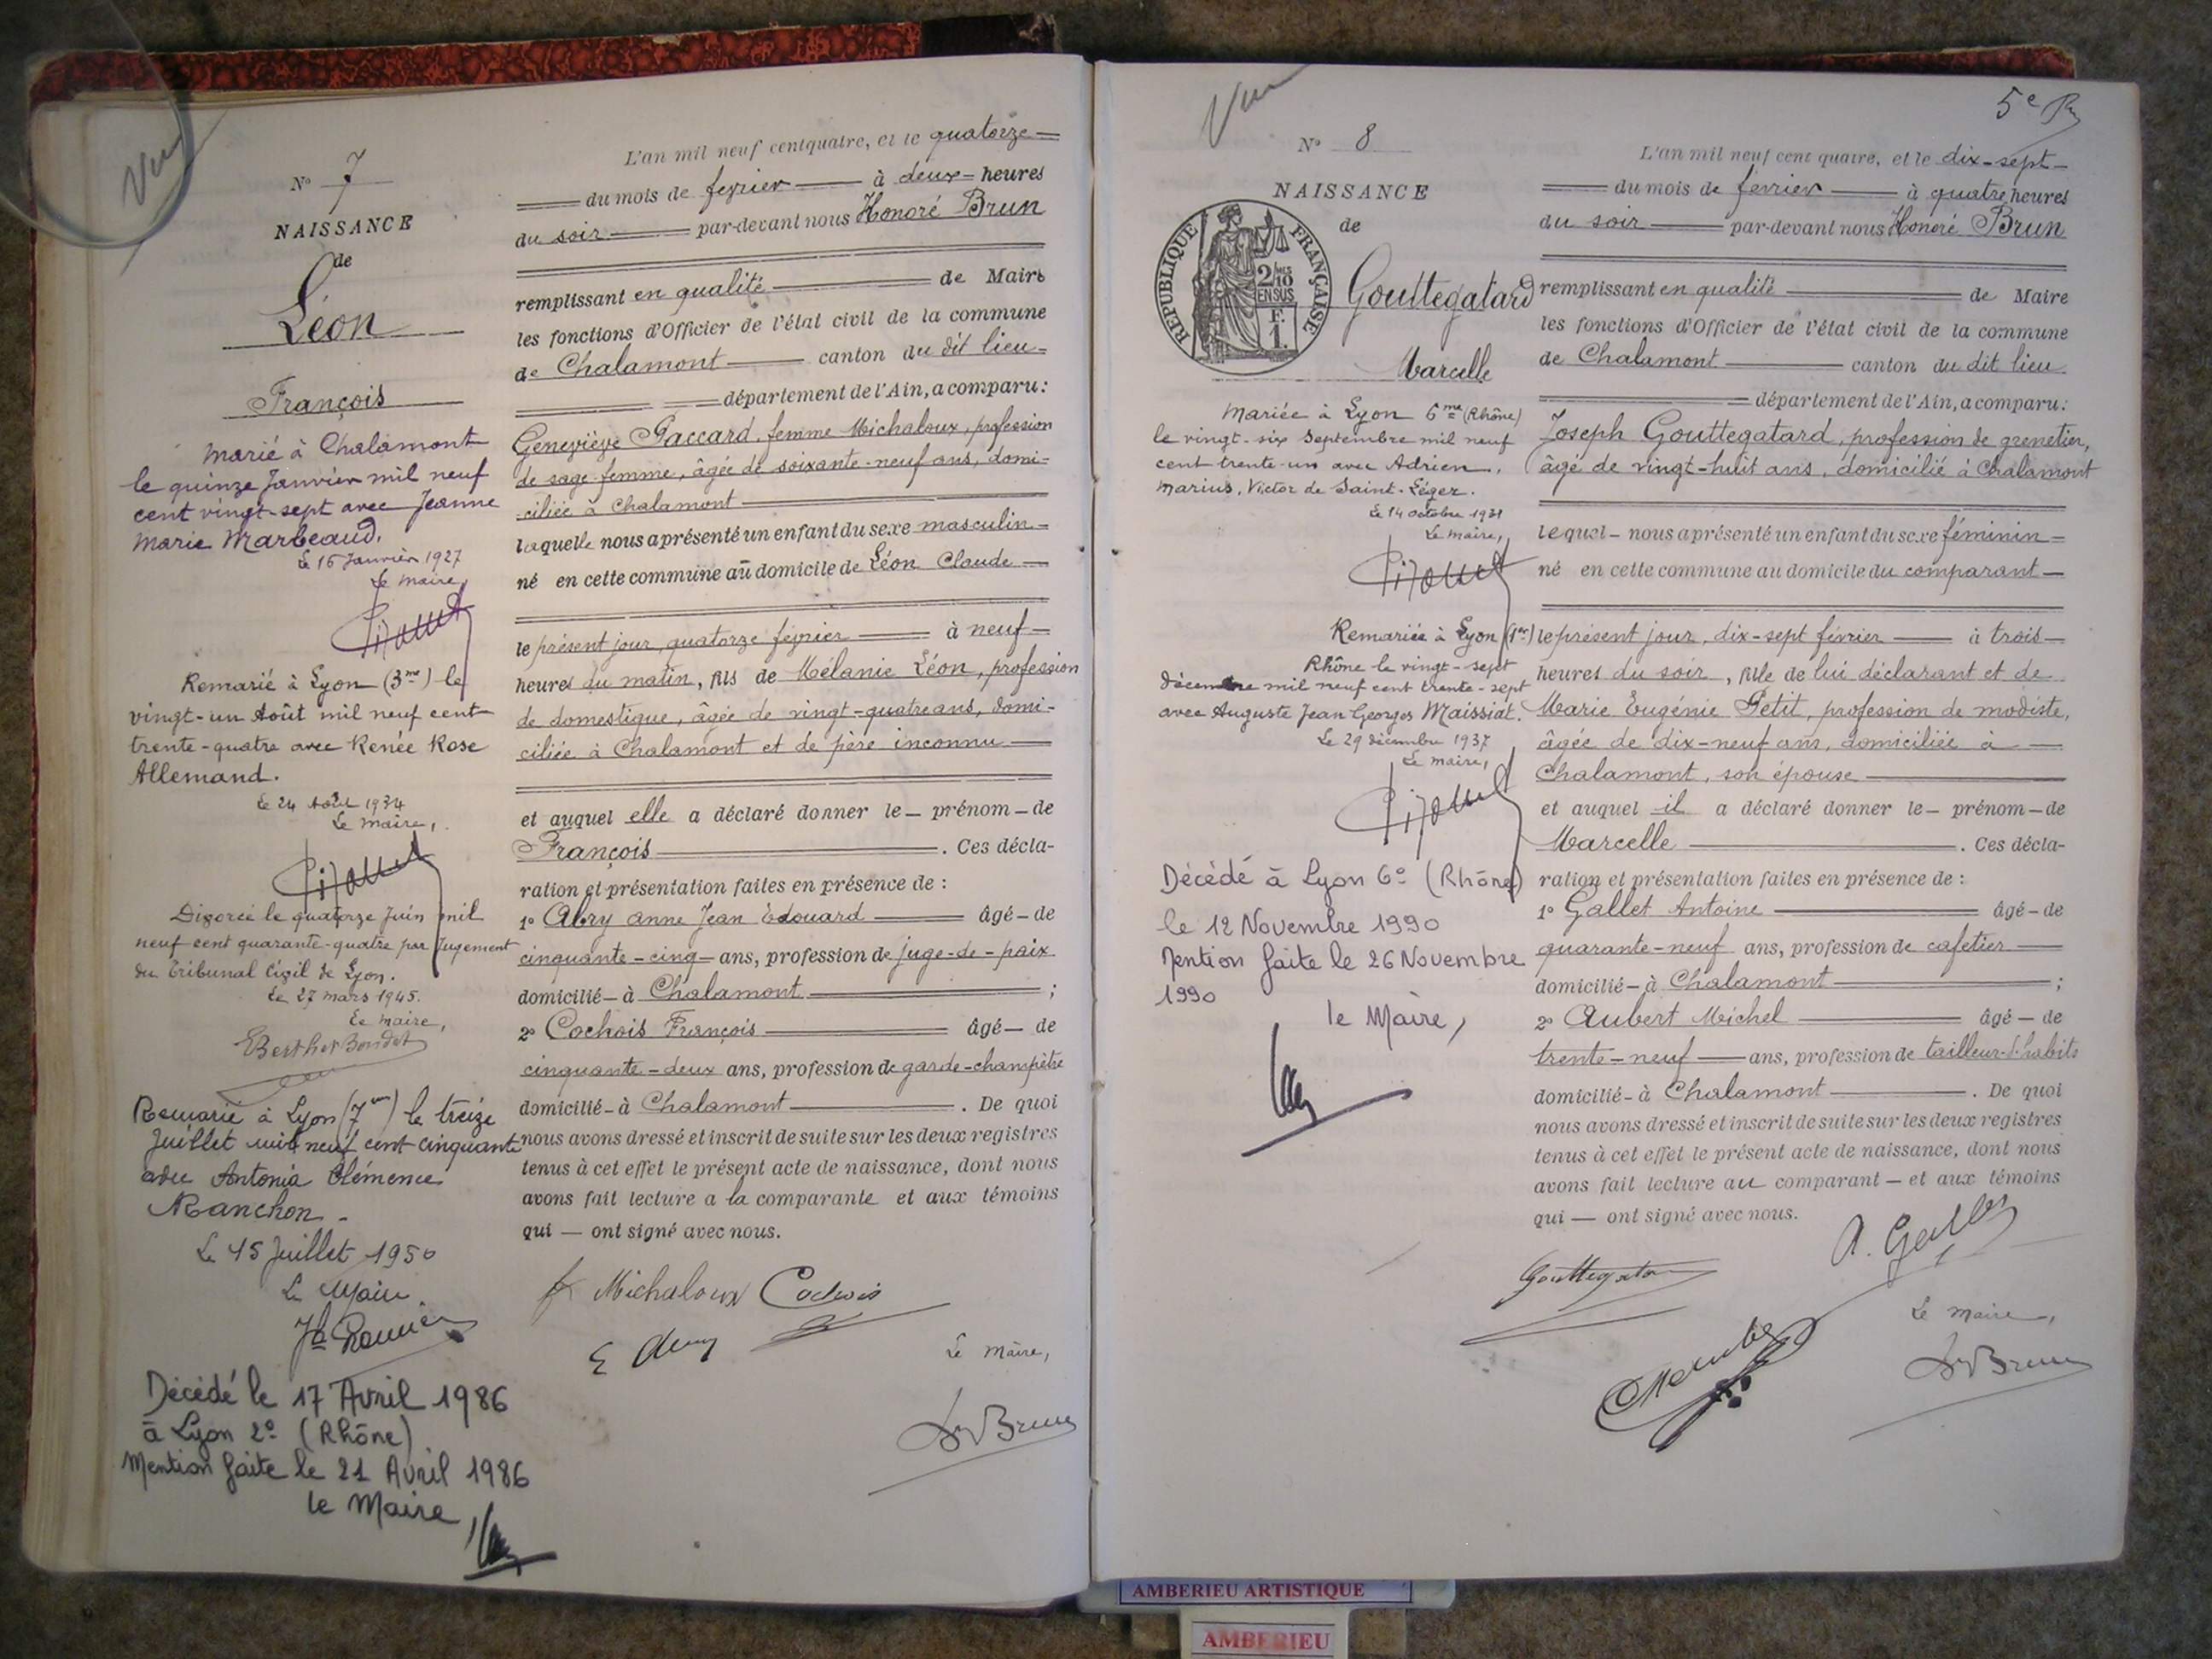 Vu
N° 7
NAISSANCE
de
Léon
François
Marié à Chalamont
le quinze Janvier mil neuf
cent vingt-sept avec Jeanne
Marie Marbeaud.
Le 16 Janvier 1927
Le maire,
Remarié à Lyon (3me) le
vingt-un Août mil neuf cent
trente-quatre avec Renée Rose
Allemand.
Le 24 Août 1934
Le maire,
Divorcé le quatorze Juin mil
neuf cent quarante-quatre par Jugement
du Tribunal Civil de Lyon.
Le 27 mars 1945.
Le maire,
Remarié à Lyon (7em) le treize
Juillet mil neuf cent cinquante
avec Antonia Clémence
Ranchon.
Le 15 Juillet 1950
Le Maire
Décédé le 17 Avril 1986
à Lyon 2e (Rhône)
Mention faite le 21 Avril 1986
le Maire,
L'an mil neuf cent quatre, et le quatorze
du mois de février à deux heures
du soir par-devant nous Honoré Brun
remplissant en qualité de Maire
les fonctions d'Officier de l'état civil de la commune
de Chalamont canton du dit lieu
département de l'Ain, a comparu :
Geneviève Gaccard, femme Michaloux, profession
de sage-femme, âgée de soixante-neuf ans, domi-
ciliée à Chalamont
laquelle nous a présenté un enfant du sexe masculin
né en cette commune au domicile de Léon Claude
le présent jour, quatorze février à neuf
heures du matin, fils de Mélanie Léon, profession
de domestique, âgée de vingt-quatre ans, domi-
ciliée à Chalamont et de père inconnu
et auquel elle a déclaré donner le prénom de
François . Ces décla-
ration et présentation faites en présence de :
1° Abry anne Jean Edouard âgé de
cinquante-cinq ans, profession de juge-de-paix
domicilié à Chalamont ;
2° Cochois François âgé de
cinquante-deux ans, profession de garde-champêtre
domicilié à Chalamont . De quoi
nous avons dressé et inscrit de suite sur les deux registres
tenus à cet effet le présent acte de naissance, dont nous
avons fait lecture a la comparante et aux témoins
qui — ont signé avec nous.
f Michaloux Cochois
Le Maire,
Brun
Vu
5e
N° 8
NAISSANCE
de
REPUBLIQUE FRANÇAISE
2/10 MES
EN SUS
F.
1.
Gouttegatard
Marcelle
Mariée à Lyon 6me (Rhône)
le vingt-six Septembre mil neuf
cent trente-un avec Adrien,
Marius, Victor de Saint-Léger.
Le 14 octobre 1931
Le maire,
Remariée à Lyon (1er)
Rhône le vingt-sept
décembre mil neuf cent trente-sept
avec Auguste Jean Georges Maissiat.
Le 29 décembre 1937
Le maire,
Décédé à Lyon 6e (Rhône)
le 12 Novembre 1990
Mention faite le 26 Novembre
1990
le Maire,
L'an mil neuf cent quatre, et le dix-sept
du mois de février à quatre heures
du soir par-devant nous Honoré Brun
remplissant en qualité de Maire
les fonctions d'Officier de l'état civil de la commune
de Chalamont canton du dit lieu
département de l'Ain, a comparu :
Joseph Gouttegatard, profession de grenetier,
âgé de vingt-huit ans, domicilié à Chalamont
lequel nous a présenté un enfant du sexe féminin
né en cette commune au domicile du comparant
le présent jour, dix-sept février à trois
heures du soir, fille de lui déclarant et de
Marie Eugénie Petit, profession de modiste,
âgée de dix-neuf ans, domiciliée à
Chalamont, son épouse
et auquel il a déclaré donner le prénom de
Marcelle . Ces décla-
ration et présentation faites en présence de :
1° Gallet Antoine âgé de
quarante-neuf ans, profession de cafetier
domicilié à Chalamont ;
2° Aubert Michel âgé de
trente-neuf ans, profession de tailleur d'habits
domicilié à Chalamont . De quoi
nous avons dressé et inscrit de suite sur les deux registres
tenus à cet effet le présent acte de naissance, dont nous
avons fait lecture au comparant — et aux témoins
qui — ont signé avec nous.
A. Gallet
Gouttegatar
Le maire,
Brun
AMBERIEU ARTISTIQUE
AMBERIEU